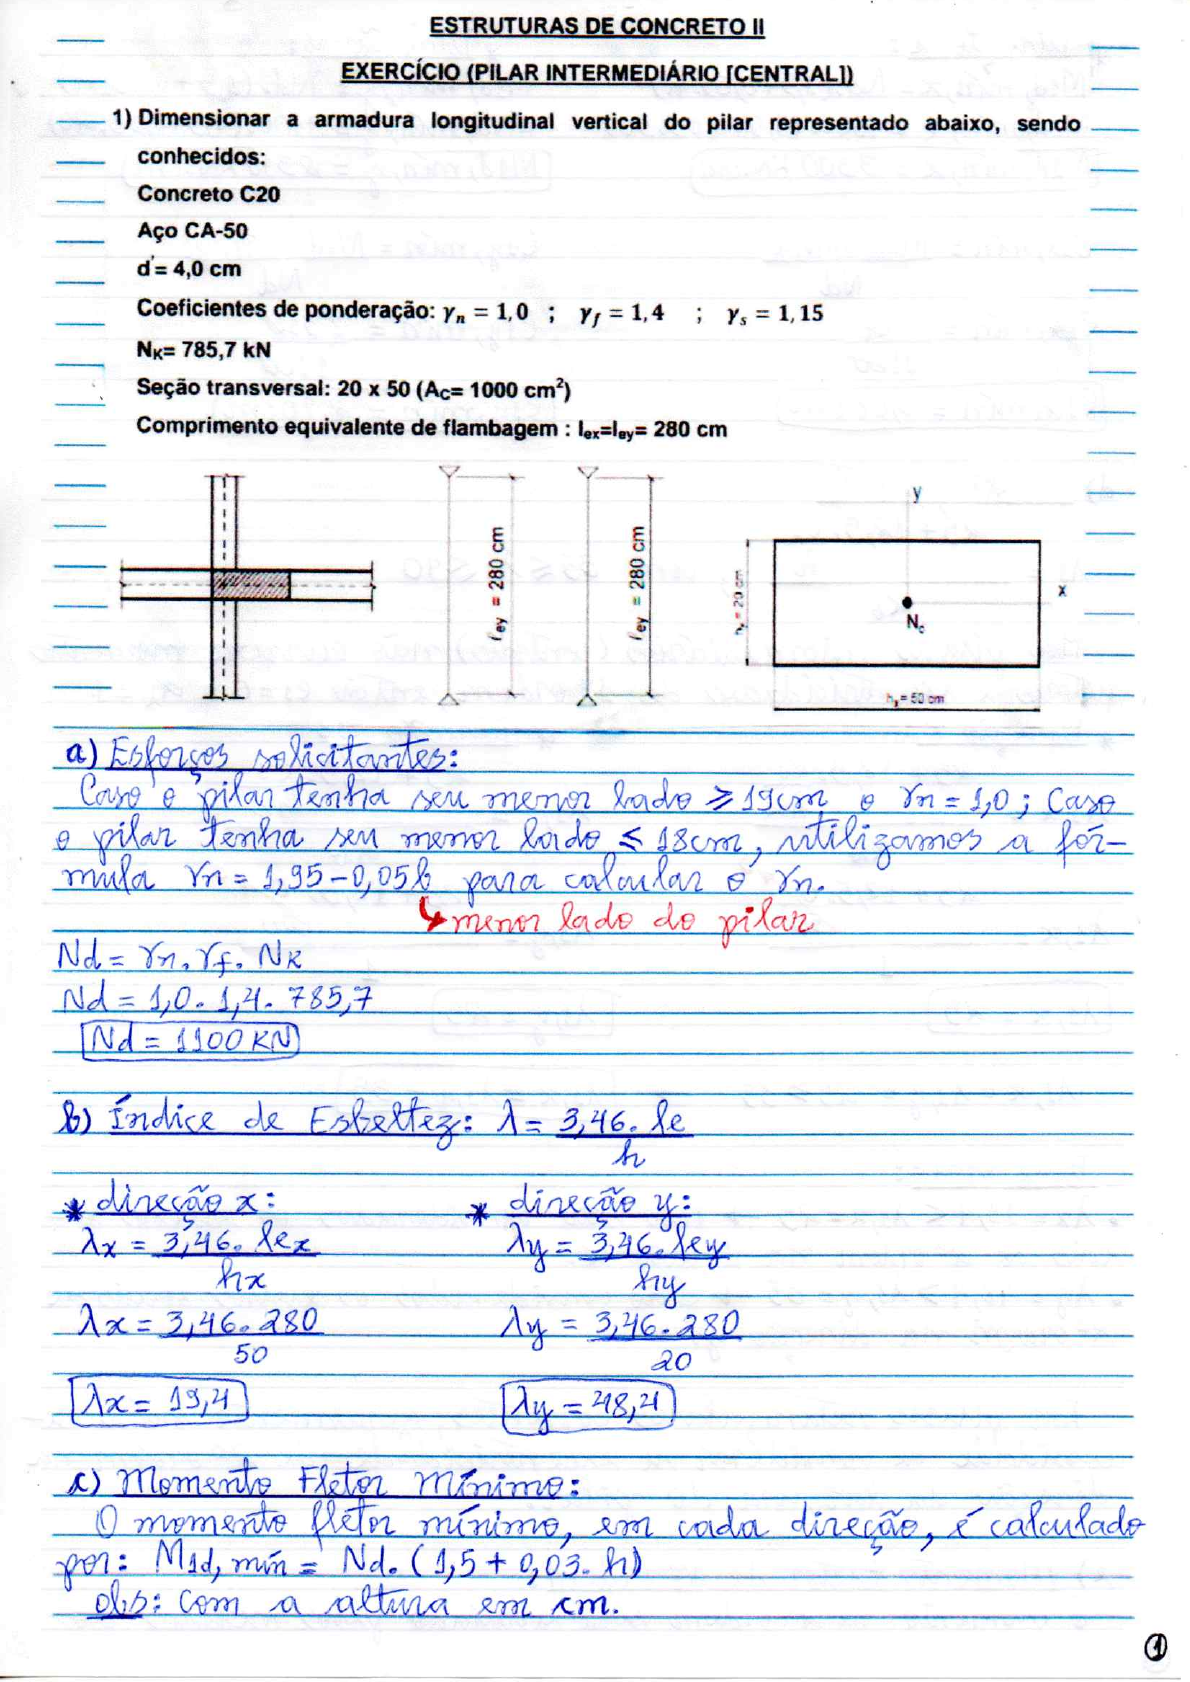 ESTRUTURAS DE CONCRETO II
EXERCÍCIO (PILAR INTERMEDIÁRIO [CENTRAL])
1) Dimensionar a armadura longitudinal vertical do pilar representado abaixo, sendo
conhecidos:
Concreto C20
Aço CA-50
d'= 4,0 cm
Coeficientes de ponderação: γn = 1,0 ; γf = 1,4 ; γs = 1,15
NK= 785,7 kN
Seção transversal: 20 x 50 (AC= 1000 cm²)
Comprimento equivalente de flambagem : lex=ley= 280 cm
ℓey = 280 cm
ℓey = 280 cm
y
x
Nc
hy = 20 cm
hx = 50 cm
a) Esforços solicitantes:
Caso o pilar tenha seu menor lado ≥ 19cm o γn = 1,0; Caso
o pilar tenha seu menor lado ≤ 18cm, utilizamos a fór-
mula γn = 1,95 - 0,05b para calcular o γn.
↳ menor lado do pilar
Nd = γn. γf. Nk
Nd = 1,0. 1,4. 785,7
Nd = 1100 KN
b) Índice de Esbeltez: λ = 3,46. le
h
* direção x: * direção y:
λx = 3,46. lex λy = 3,46. ley
hx hy
λx = 3,46. 280 λy = 3,46. 280
50 20
λx = 19,4 λy = 48,4
c) Momento Fletor Mínimo:
O momento fletor mínimo, em cada direção, é calculado
por: M1d, mín = Nd. (1,5 + 0,03. h)
obs: com a altura em cm.
1